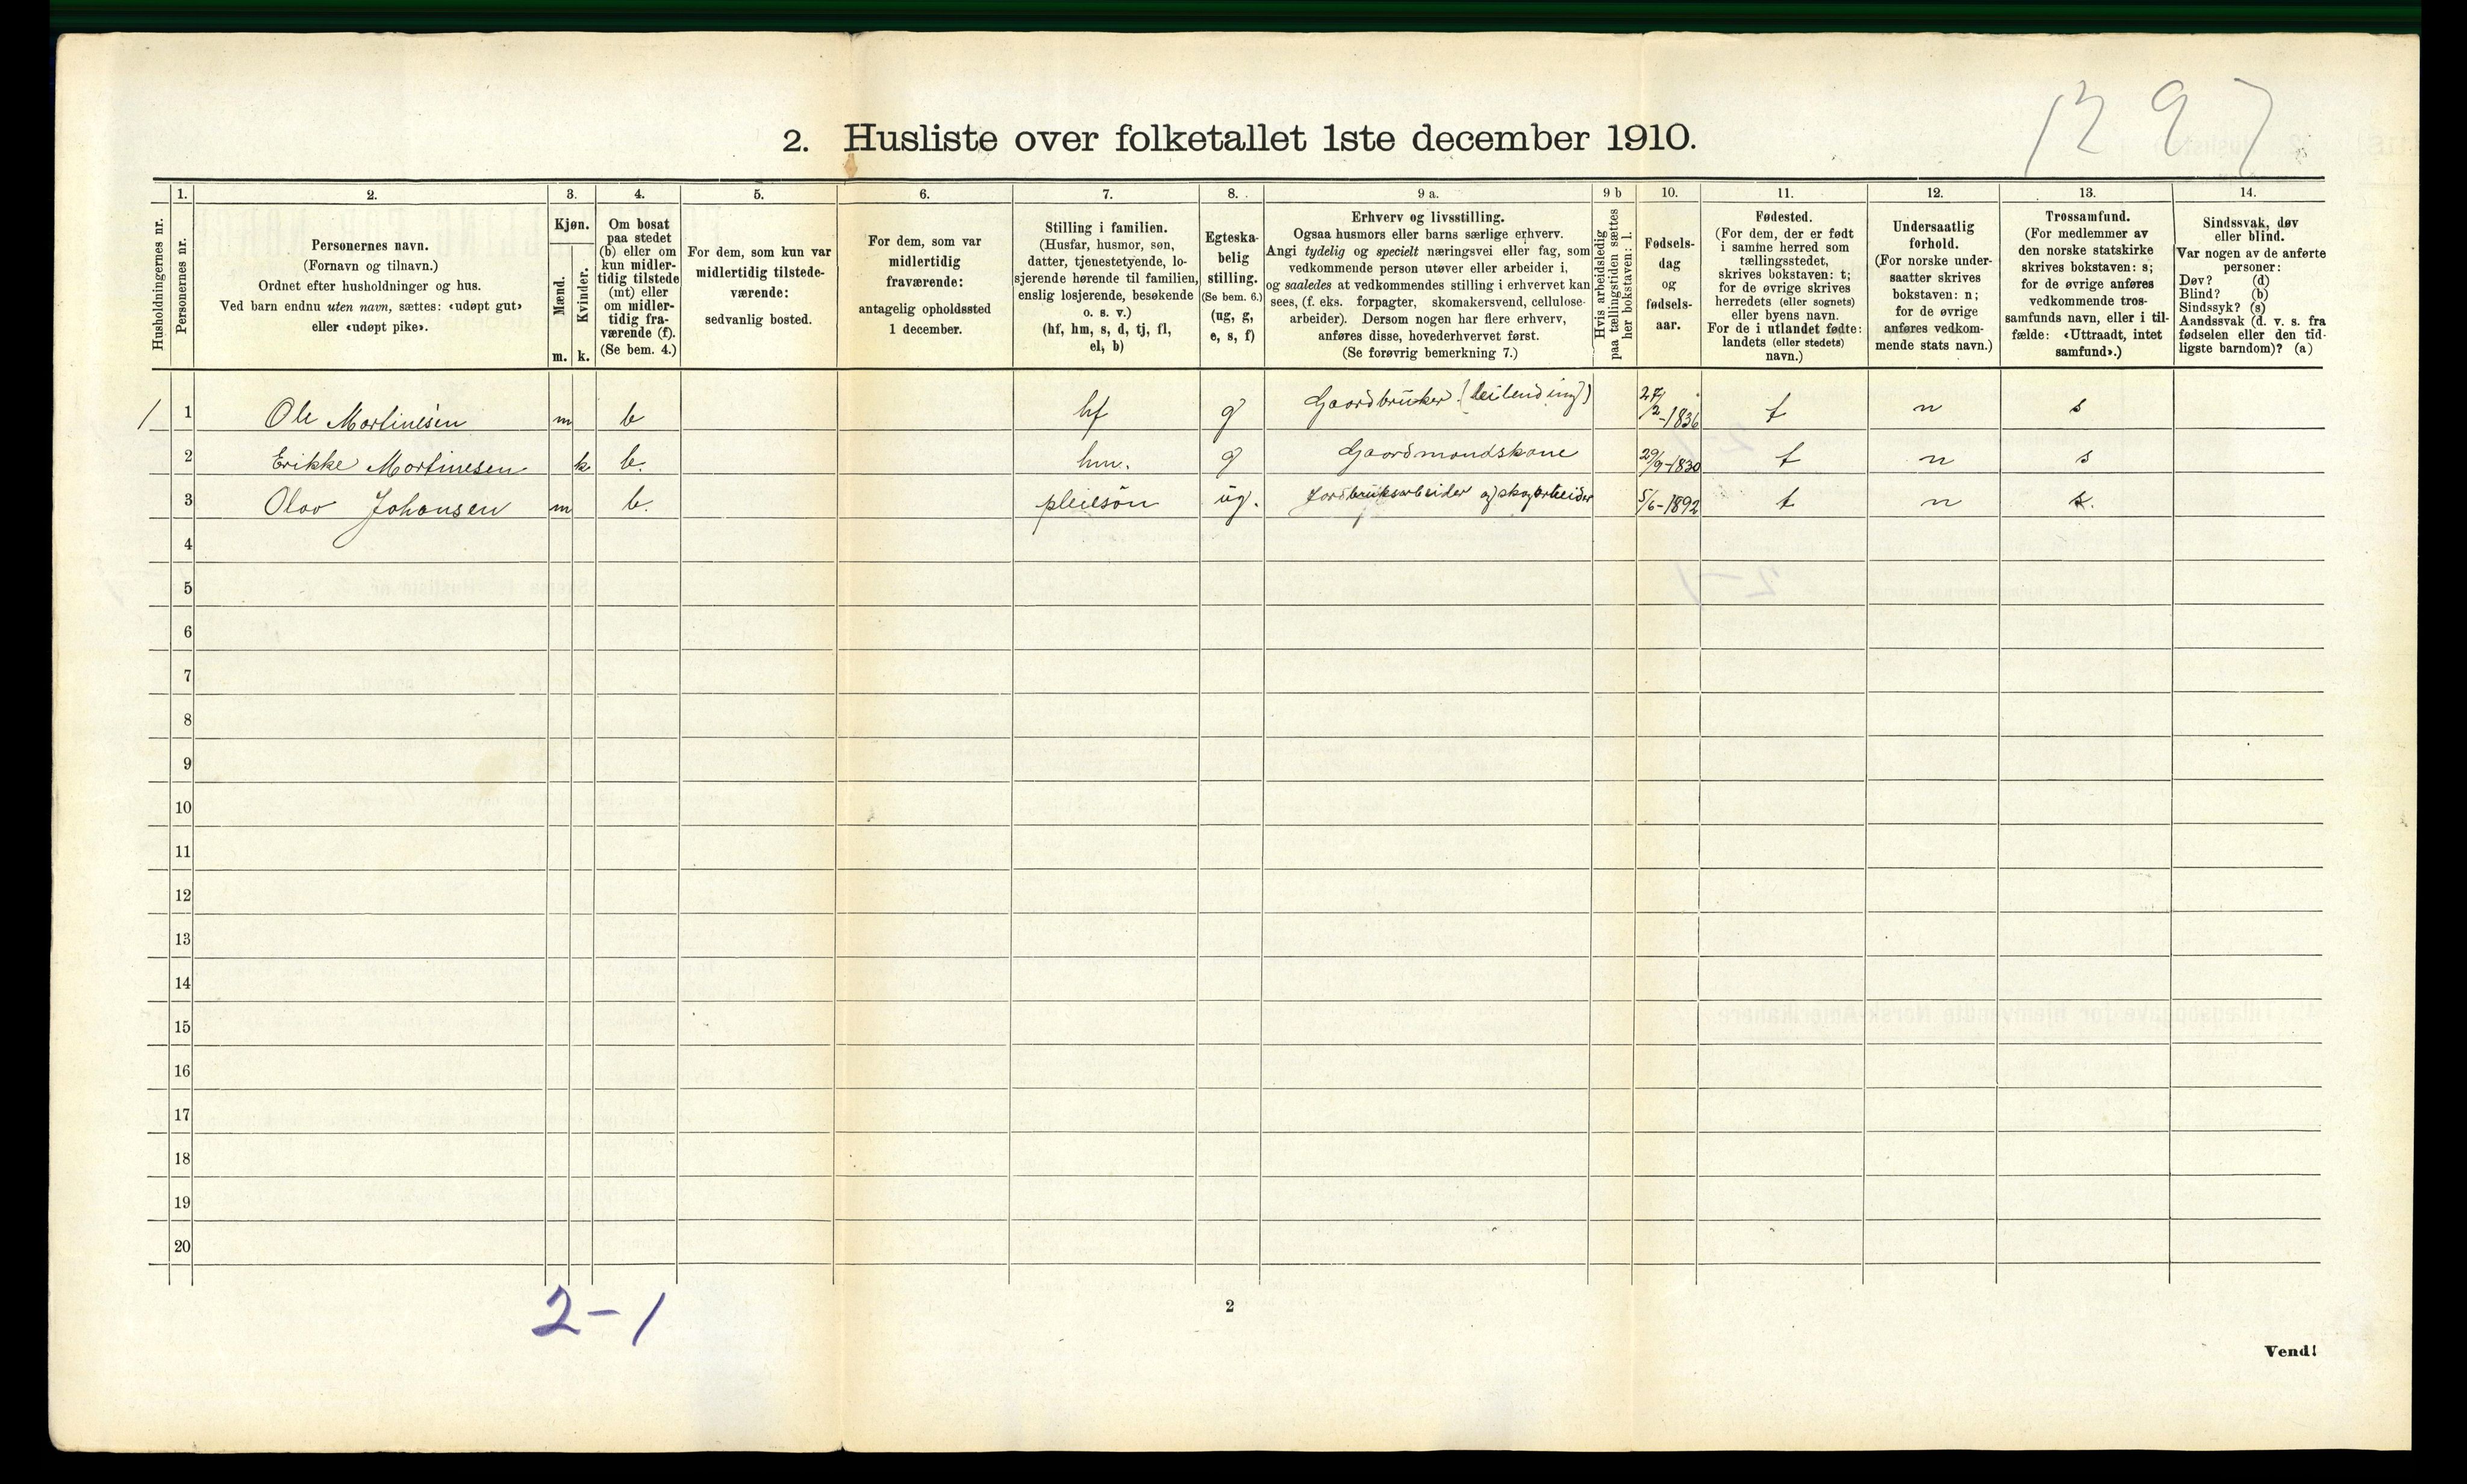 1297
2. Husliste over folketallet 1ste december 1910.
Husholdningernes nr.
1.
Personernes nr.
2.
Personernes navn.
(Fornavn og tilnavn.)
Ordnet efter husholdninger og hus.
Ved barn endnu uten navn, sættes: «udøpt gut»
eller «udøpt pike».
3.
Kjøn.
Mænd.
Kvinder.
m. k.
4.
Om bosat
paa stedet
(b) eller om
kun midler-
tidig tilstede
(mt) eller
om midler-
tidig fra-
værende (f).
(Se bem. 4.)
5.
For dem, som kun var
midlertidig tilstede-
værende:
sedvanlig bosted.
6.
For dem, som var
midlertidig
fraværende:
antagelig opholdssted
1 december.
7.
Stilling i familien.
(Husfar, husmor, søn,
datter, tjenestetyende, lo-
sjerende hørende til familien,
enslig losjerende, besøkende
o. s. v.)
(hf, hm, s, d, tj, fl,
el, b)
8.
Egteska-
belig
stilling.
(Se bem. 6.)
(ug, g,
e, s, f)
9 a.
Erhverv og livsstilling.
Ogsaa husmors eller barns særlige erhverv.
Angi tydelig og specielt næringsvei eller fag, som
vedkommende person utøver eller arbeider i,
og saaledes at vedkommendes stilling i erhvervet kan
sees, (f. eks. forpagter, skomakersvend, cellulose-
arbeider). Dersom nogen har flere erhverv,
anføres disse, hovederhvervet først.
(Se forøvrig bemerkning 7.)
9 b
Hvis arbeidsledig
paa tællingstiden sættes
her bokstaven: l.
10.
Fødsels-
dag
og
fødsels-
aar.
11.
Fødested.
(For dem, der er født
i samme herred som
tællingsstedet,
skrives bokstaven: t;
for de øvrige skrives
herredets (eller sognets)
eller byens navn.
For de i utlandet fødte:
landets (eller stedets)
navn.)
12.
Undersaatlig
forhold.
(For norske under-
saatter skrives
bokstaven: n;
for de øvrige
anføres vedkom-
mende stats navn.)
13.
Trossamfund.
(For medlemmer av
den norske statskirke
skrives bokstaven: s;
for de øvrige anføres
vedkommende tros-
samfunds navn, eller i til-
fælde: «Uttraadt, intet
samfund».)
14.
Sindssvak, døv
eller blind.
Var nogen av de anførte
personer:
Døv? (d)
Blind? (b)
Sindssyk? (s)
Aandssvak (d. v. s. fra
fødselen eller den tid-
ligste barndom)? (a)
1 1 Ole Martinesen m b hf g Gaardbruker (leilending) 27/2-1836 t n s
2 Erikke Martinesen k b. hm. g Gaardmandskone 29/9-1830 t n s
3 Olav Johansen m b. pleiesön ug. Jordbruksarbeider og skogarbeider 5/6-1892 t n s.
4
5
6
7
8
9
10
11
12
13
14
15
16
17
18
19
20
2-1
2
Vend!